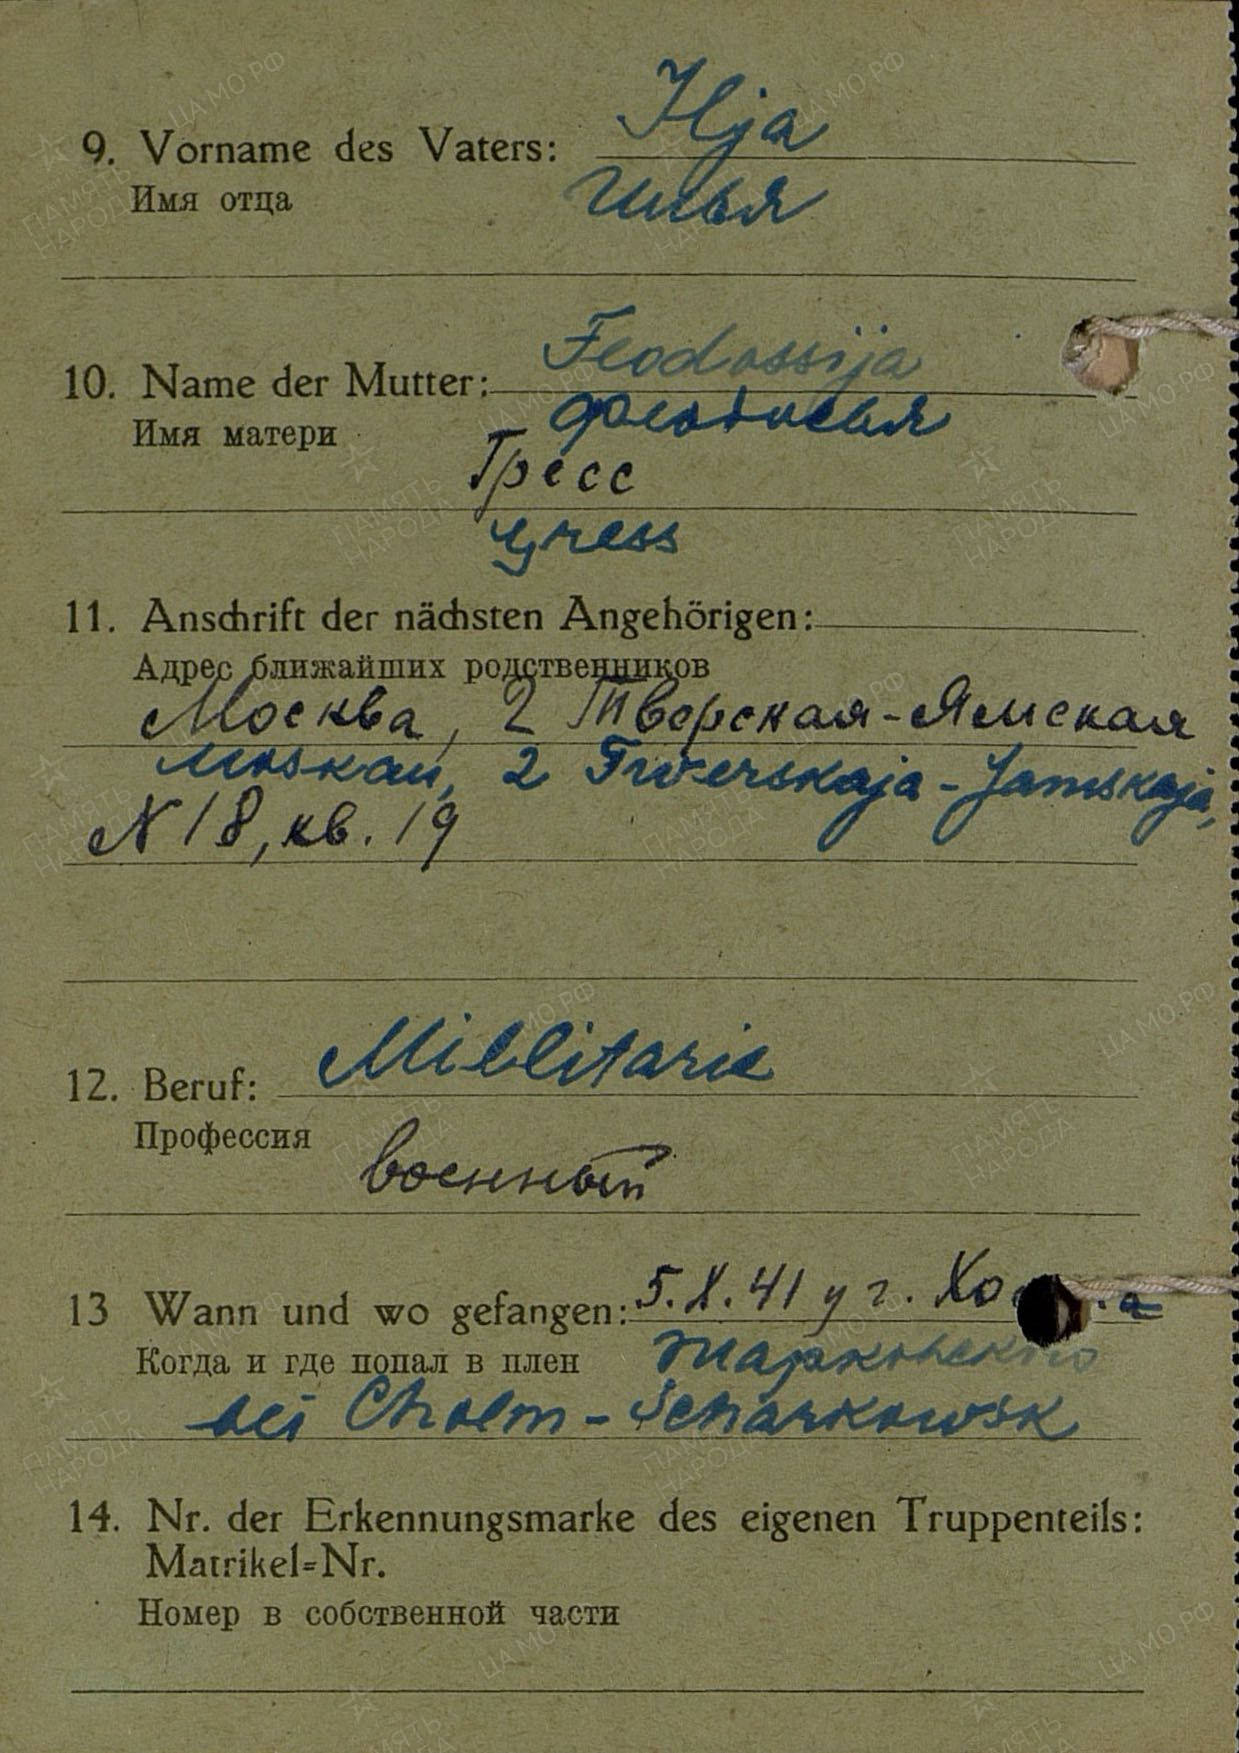 Ilja
9. Vorname des Vaters:
Имя отца
Илья
Feodossija
10. Name der Mutter:
Имя матери
Гресс
Gress
11. Anschrift der nächsten Angehörigen:
Адрес ближайших родственников
Москва, 2 Тверская-Ямская
Moskau, 2 Twerskaja-Jamskaja,
N 18, кв. 19
Millitarie
12. Beruf:
Профессия
военный
13 Wann und wo gefangen: 5.X.41 у г.
Когда и где попал в плен
bei Cholm-Scharkowsk
14. Nr. der Erkennungsmarke des eigenen Truppenteils:
Matrikel=Nr.
Номер в собственной части
ПАМЯТЬ НАРОДА
ЦА МО РФ